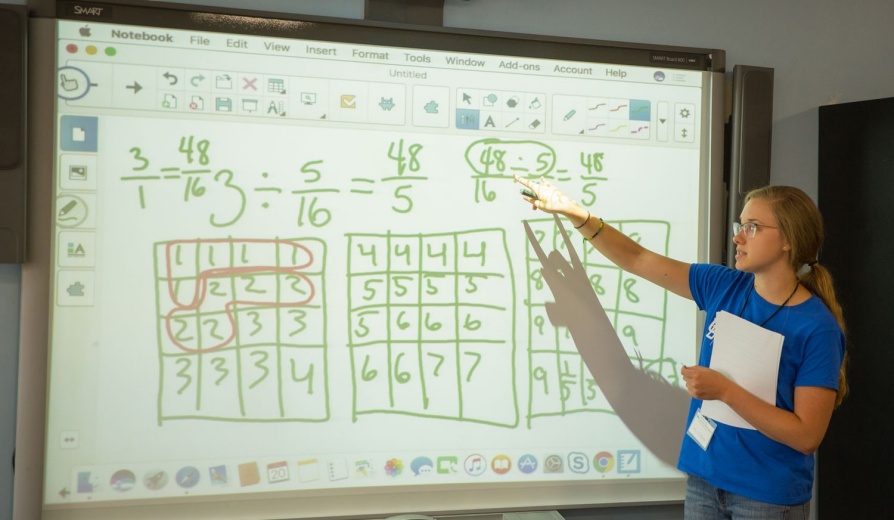 SMART
Notebook File Edit View Insert Format Tools Window Add-ons Account Help
Untitled
3/1 = 48/16 3 ÷ 5/16 = 48/5 48 ÷ 5 / 16 = 48/5
1 1 1 1
1 2 2 2
2 2 3 3
3 3 3 4
4 4 4 4
5 5 5 5
5 6 6 6
6 6 7 7
8 8 8
9 9
9 1/5